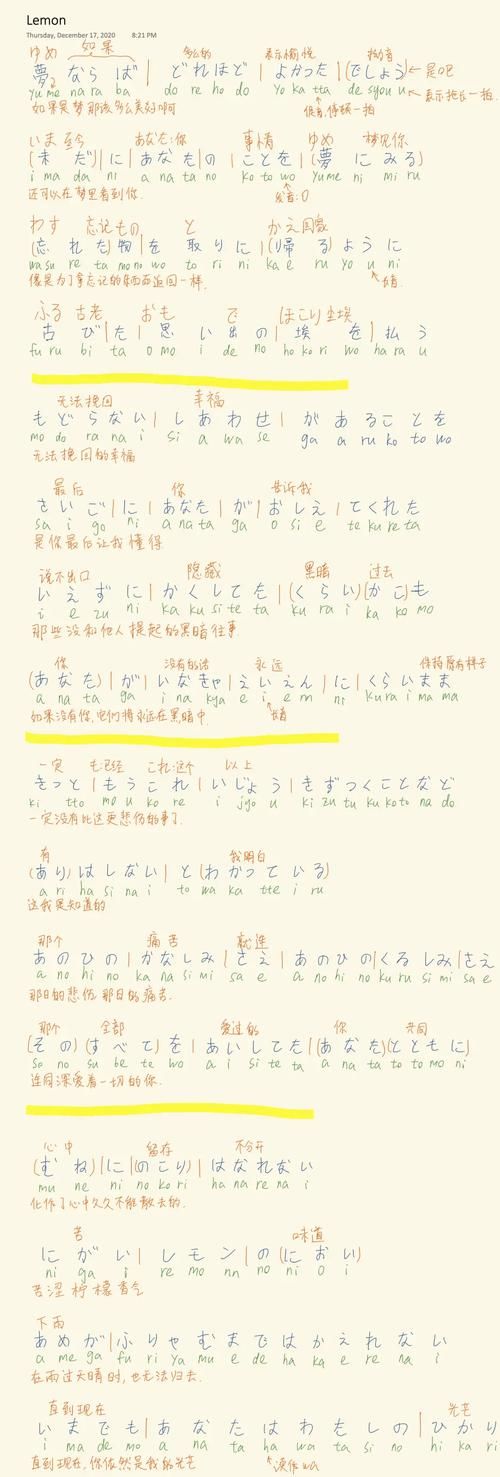 Lemon
Thursday, December 17, 2020 8:21 PM
ゆめ 如果 多么的 表示愉悦 推量
夢 なら ば | どれほど | よかった | (でしょう) ← 是吧
yu me na ra ba do re ho do yo ka tta de syou u ← 表示拖长一拍.
如果是梦那该多么美好啊 促音,停顿一拍
いま 至今 あなた:你 事情 ゆめ 梦见你
(未だ) | に | あなた | の | ことを | (夢にみる)
i ma da ni a na ta no ko to wo yume ni mi ru
还可以在梦里看到你. 发音:O
わす 忘记もの と かえ 回家
(忘れた) 物 | を 取りに | (帰る) ように
wa su re ta mo no wo to ri ni ka e ru yo u ni
像是为了拿忘记的东西而返回一样. 长音
ふる 古老 おも で ほこり 尘埃
古び | た | 思い出の | 埃 を | 払う
fu ru bi ta o mo i de no ho ko ri wo ha ra u
无法挽回 幸福
もどらない | しあわせ | があることを
mo do ra na i si a wa se ga a ru ko to wo
无法挽回的幸福
最后 你 告诉我
さいご | に | あなた | が | おしえ | てくれた
sa i go ni a na ta ga o si e te ku re ta
是你最后让我懂得
说不出口 隐藏 黑暗 过去
いえずに | かくしてた | (くらい)(かこ)も
i e zu ni ka ku si te ta ku ra i ka ko mo
那些没和他人提起的黑暗往事
你 没有的话 永远 保持原有样子
(あなた) | が | いなきゃ | えいえん | に | くらいまま
a na ta ga i na kya e i e n ni ku ra i ma ma
如果没有你,它们将永远在黑暗中. 长音
一定 も已经 これ这个 以上
きっと | もうこれ | いじょう | きずつくことなど
ki tto mo u ko re i jyo u ki zu tu ku ko to na do
一定没有比这更悲伤的事了.
有 我明白
(あり) はしない | と (わかっている)
a ri ha si na i to wa ka tte i ru
这我是知道的
那个 痛苦 就连
あのひの | かなしみ | さえ | あのひの | くるしみ | さえ
a no hi no ka na si mi sa e a no hi no ku ru si mi sa e
那日的悲伤 那日的痛苦.
那个 全部 爱过的 你 共同
(その)(すべて) を | あいしてた | (あなた)(とともに)
so no su be te wo a i si te ta a na ta to to mo ni
连同深爱着一切的你.
心中 留存 不分开
(むね) | に | (のこり) | はなれない
mu ne ni no ko ri ha na re na i
化作了心中久久不能散去的.
苦 味道
にがい | レモン | の (におい)
ni ga i re mo nn no ni o i
苦涩柠檬香气
下雨
あめが | ふりやむまではかえれない
a me ga fu ri ya mu e de ha ka e re na i
在雨过天晴时,也无法归去.
直到现在 光芒
いまでも | あなたはわたしの | ひかり
i ma de mo a na ta ha wa ta si no hi ka ri
直到现在,你依然是我的光芒 读作wa